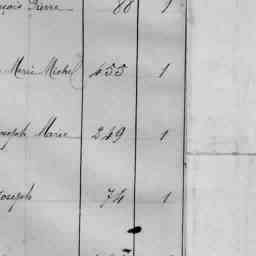 nçois Pierre 88 1
Marie Michel 455 1
oseph Marie 249 1
Joseph 74 1